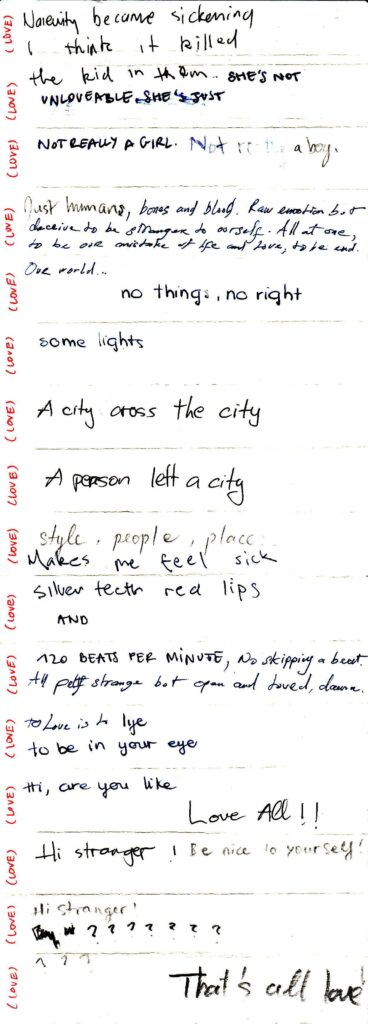 (LOVE) Naievity became sickening
I think it killed
(LOVE) the kid in them.. SHE'S NOT
UNLOVEABLE SHE'S JUST
(LOVE) NOT REALLY A GIRL. Not a boy.
(LOVE) Just humans, bones and blood. Raw emotion but
deceive to be stranger to ourself. All at one,
to be our mistake of life and love, to be end.
Our world...
(LOVE) no things, no right
(LOVE) some lights
(LOVE) A city cross the city
(LOVE) A person left a city
(LOVE) style, people, place
Makes me feel sick
(LOVE) silver teeth red lips
AND
(LOVE) 120 BEATS PER MINUTE, No skipping a beat.
All strange but open and loved, damn.
(LOVE) to Love is to lye
to be in your eye
(LOVE) Hi, are you like
Love All!!
(LOVE) Hi stranger! Be nice to yourself!
(LOVE) Hi stranger!
? ? ? ? ? ? ?
? ? ?
(LOVE) That's all love!